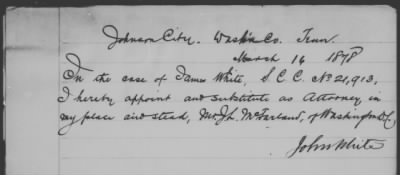 Johnson City. Wash'n Co. Tenn.
March 14 1878
In the case of James White, S.C.C. No 21,913,
I hereby appoint and substitute as Attorney in
my place and stead, Mr. J.h. McFarland, of Washington D.C.
John White